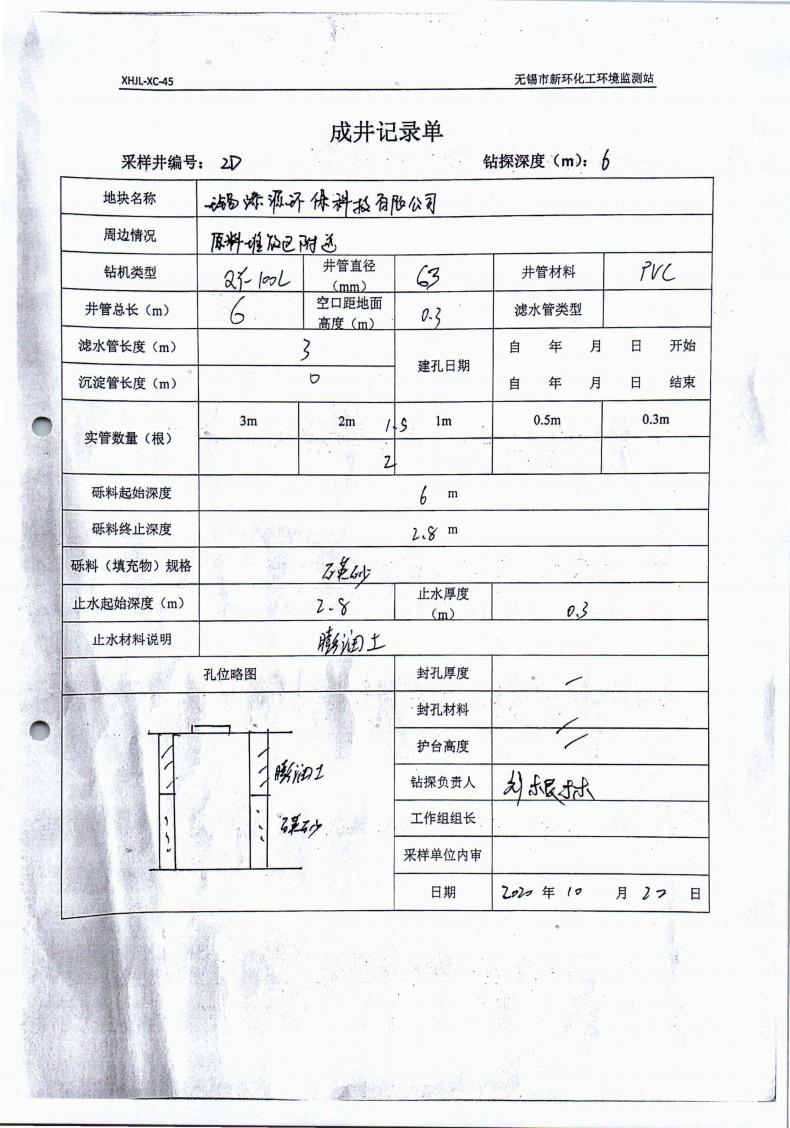 XHJL-XC-45 无锡市新环化工环境监测站
成井记录单
采样井编号: 2D 钻探深度（m）: 6
地块名称 源环保科技有限公司
周边情况 原料堆放区附近
钻机类型 QY-100L 井管直径（mm） 63 井管材料 PVC
井管总长（m） 6 空口距地面高度（m） 0.3 滤水管类型
滤水管长度（m） 3 建孔日期 自 年 月 日 开始
沉淀管长度（m） 0 自 年 月 日 结束
实管数量（根） 3m 2m 1.5 1m 0.5m 0.3m
2
砾料起始深度 6 m
砾料终止深度 2.8 m
砾料（填充物）规格 石英砂
止水起始深度（m） 2.8 止水厚度（m） 0.3
止水材料说明 膨润土
孔位略图 封孔厚度 /
封孔材料 /
护台高度 /
膨润土
钻探负责人 刘根林
石英砂
工作组组长
采样单位内审
日期 2020 年 10 月 日